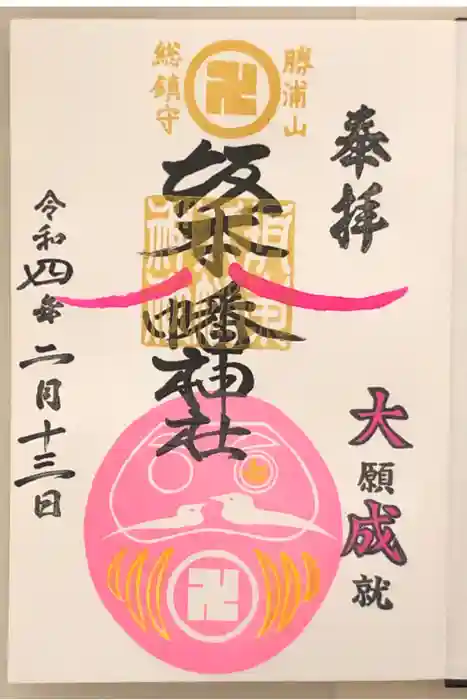 奉拝
大願成就
勝浦山
総鎮守
坂本八幡神社
令和四年二月十三日